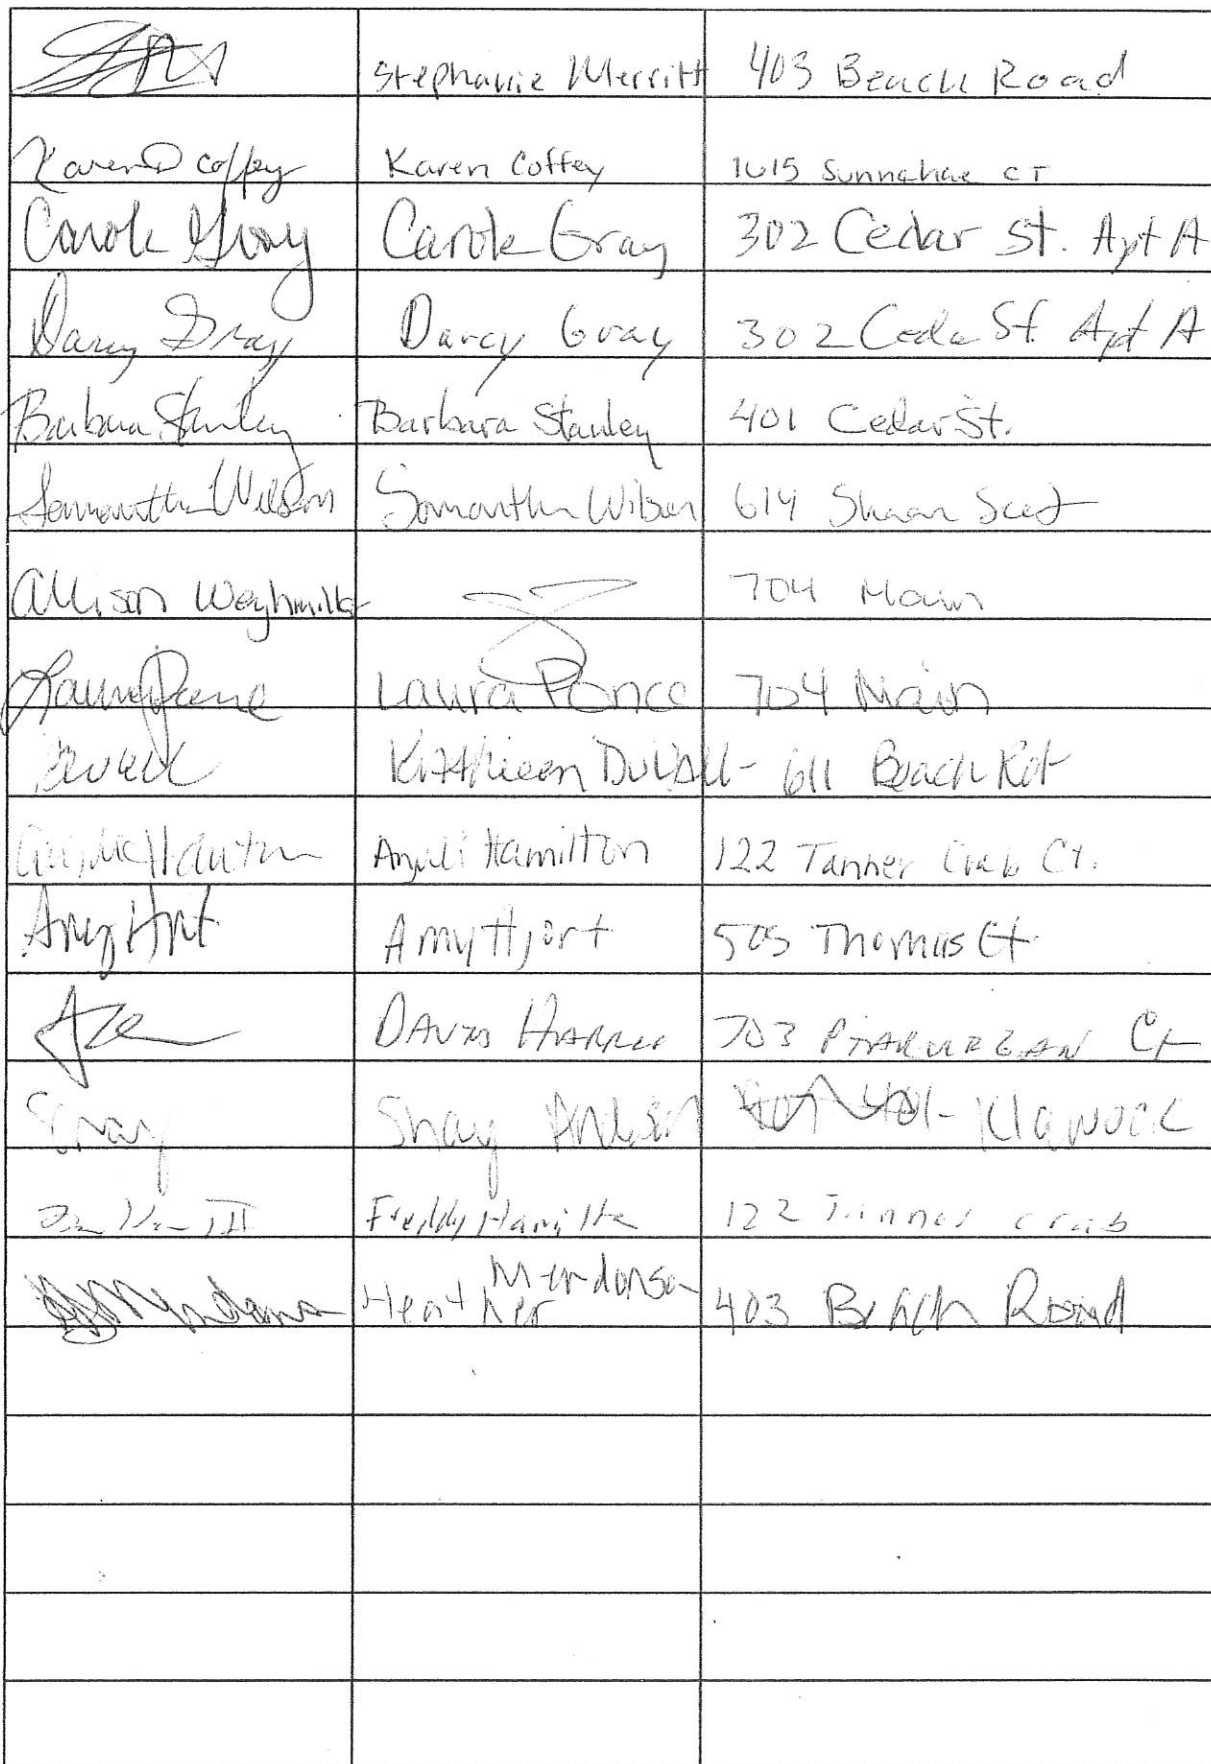 Stephanie Merritt 403 Beach Road
Karen D Coffey Karen Coffey 1615 Sunnahae CT
Carole Gray Carole Gray 302 Cedar St. Apt A
Darcy Gray Darcy Gray 302 Ceda St. Apt A
Barbara Stanley Barbara Stanley 401 Cedar St.
Samantha Wilson Samantha Wilson 614
Allison Weyhmiller 704 Main
Laura Ponce Laura Ponce 704 Main
Kathleen Duvall - 611 Beach Rd
Hamilton 122 Tanner Crab Ct.
Amy Hjort Amy Hjort 505 Thomas Ct
703 Ct
Shay Shay Klawock
III Freddy Hamilton 122 Tanner crab
Mendonsa
Heather 403 Beach Road